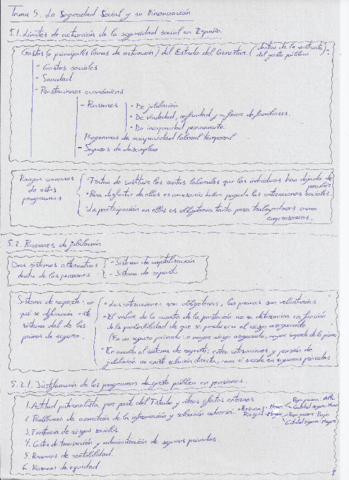 Tema 5. La Seguridad Social y su Financiación
5.1. Límites de actuación de la seguridad social en España
Gastos (o principales líneas de actuación) del Estado del Bienestar (dentro de la
del gasto público)
- Gastos sociales
- Sanidad
- Prestaciones económicas
- Pensiones - De jubilación
- De viudedad, orfandad y a favor de familiares.
- De incapacidad permanente.
Programas de incapacidad laboral temporal
- Seguros de desempleo
Rasgos comunes
de estos
programas
- Tratan de sustituir las rentas laborales que los individuos han dejado de
percibir
- Para disfrutar de ellos es necesario haber pagado las cotizaciones sociales.
- La participación en ellos es obligatoria tanto para trabajadores como
empresarios.
5.2. Pensiones de jubilación
Dos sistemas alternativos
dentro de las pensiones
- Sistema de capitalización
- Sistema de reparto
Sistema de reparto:
qué se diferencia el
sistema del de las
primas de seguro.
- Las cotizaciones son obligatorias, las primas son voluntarias
- El valor de la cuantía de la prestación no se determina en función
de la probabilidad de que se produzca el riesgo asegurado
- En cuanto al sistema de reparto, entre cotizaciones y pensión de
jubilación no existe relación directa, como sí sucede en seguros privados
5.2.1. Justificación de los programas de gasto público en pensiones.
1. Actitud paternalista por parte del Estado y otros efectos externos
2. Problemas de asimetría de la información y selección adversa.
3. Existencia de riesgos sociales.
4. Costes de transacción y administración de seguros privados.
5. Razones de rentabilidad.
6. Razones de equidad.